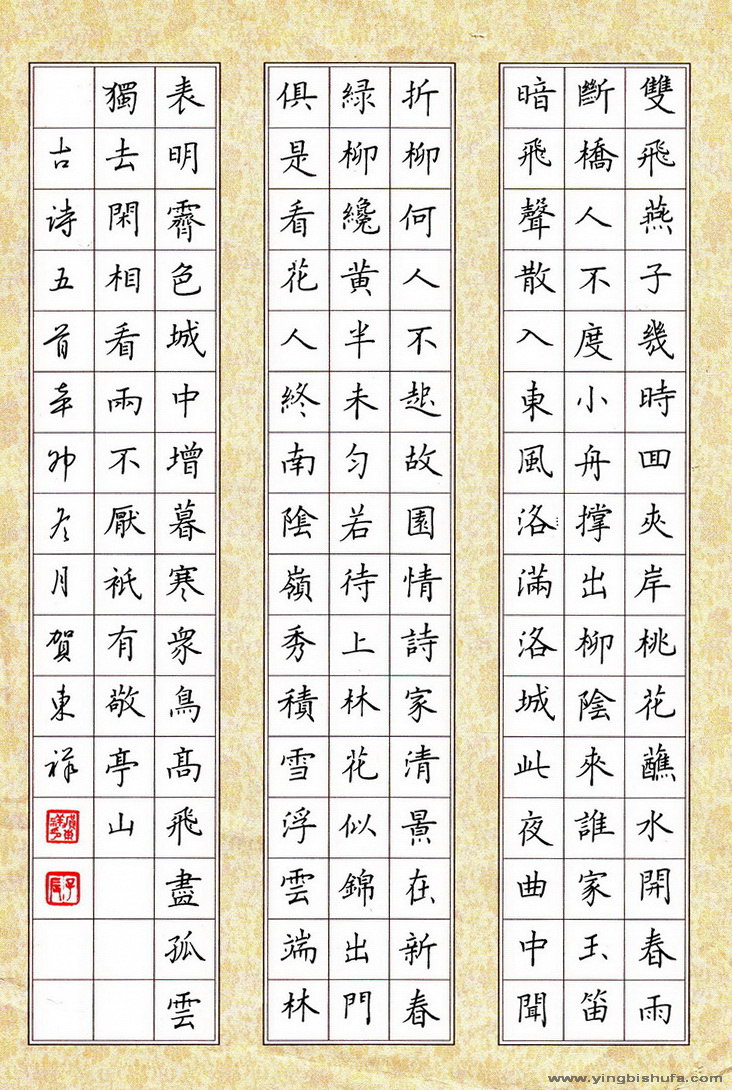 雙飛燕子幾時囬夾岸桃花蘸水開春雨
斷橋人不度小舟撑出柳陰來誰家玉笛
暗飛聲散入東風洛滿洛城此夜曲中聞
折柳何人不起故園情詩家清景在新春
緑柳纔黄半未匀若待上林花似錦出門
俱是看花人終南陰嶺秀積雪浮雲端林
表明霽色城中增暮寒衆鳥髙飛盡孤雲
獨去閑相看兩不厭衹有敬亭山
古詩五首辛卯冬月賀東祥
www.yingbishufa.com